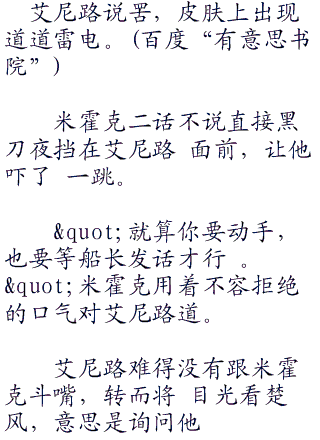 艾尼路说罢，皮肤上出现
道道雷电。(百度“有意思书
院”)
米霍克二话不说直接黑
刀夜挡在艾尼路 面前，让他
吓了 一跳。
&quot;就算你要动手，
也要等船长发话才行 。
&quot;米霍克用着不容拒绝
的口气对艾尼路道。
艾尼路难得没有跟米霍
克斗嘴，转而将 目光看楚
风，意思是询问他